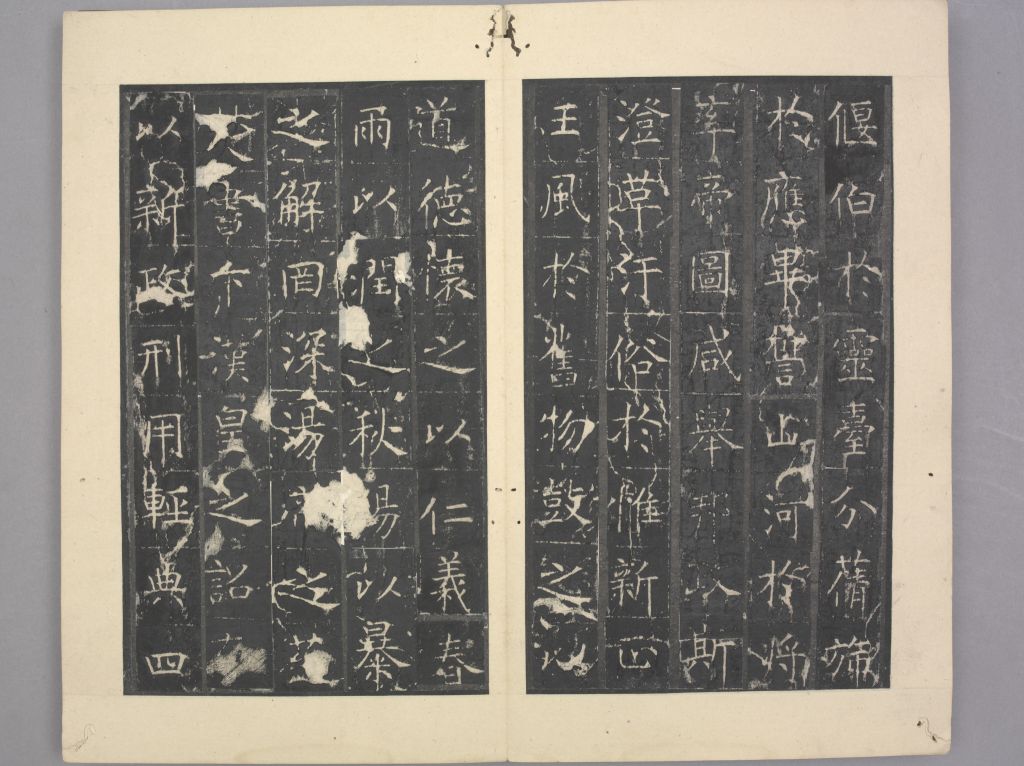 偃伯於靈臺分藩
於應畢誓山河於將
帝圖咸舉邦以斯
澄草汙俗於惟新正
王風於舊物鼓之以
道德懷之以仁義春
雨以潤之秋陽以暴
之解罔深湯之
書漢皇之詔
以新政刑用輕典四